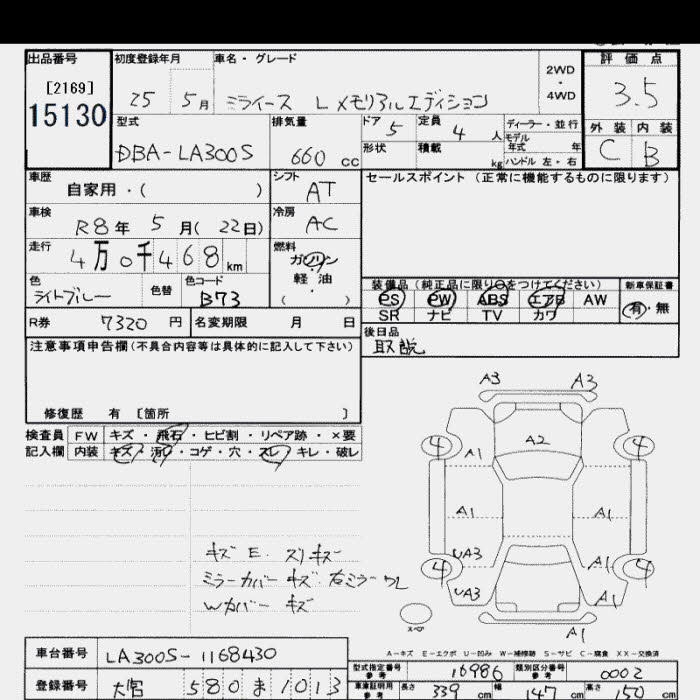 出品番号 初度登録年月 車名・グレード 2WD・4WD 評価点
[2169]
15130 25 5月 ミライース L メモリアルエディション 3.5
型式 排気量 ドア 5 定員 4人 ディーラー・並行 外装 内装
モデル年式 年
DBA-LA300S 660cc 形状 積載 kg ハンドル 左・右 C B
車歴 シフト セールスポイント(正常に機能するものに限ります)
自家用・( ) AT
車検 冷房
R8年 5月(22日) AC
走行 燃料
4万0千468km ガソリン・軽油( )
色 色替 色コード 装備品(純正品に限り○をつけてください) 新車保証書
ライトブルー B73 PS PW ABS エアB AW 有・無
SR ナビ TV カワ
R券 7320円 名変期限 月 日 後日品
注意事項申告欄(不具合内容等は具体的に記入して下さい) 取説
修復歴 有 [箇所 ]
A3 A3
検査員 FW キズ・飛石・ヒビ割・リペア跡・×要
記入欄 内装 キズ・汚レ・コゲ・穴・スレ・キレ・破レ
4 A1 A2 4
A1 A1 A1
キズ E. スリキズ UA3 A1
ミラーカバー キズ 右ミラーワレ 4 4
Wカバー キズ UA3 A1
スペア A1
A-キズ E-エクボ U-凹み W-補修跡 S-サビ C-腐食 XX-交換済
車台番号 LA300S-1168430
型式指定番号 参考 16986 類別区分番号 参考 0002
登録番号 大宮 580 ま 1013
車庫証明用 参考 長さ 339cm 幅 147cm 高さ 150cm